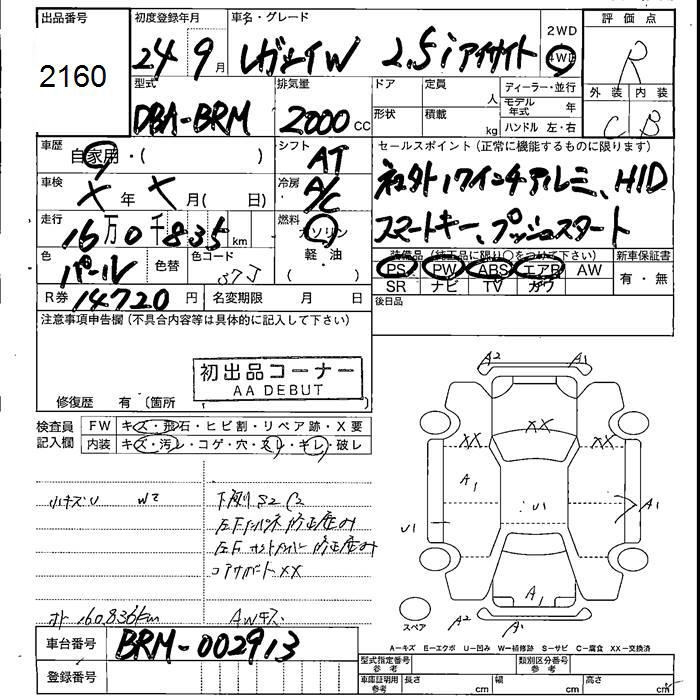 出品番号 初度登録年月 車名・グレード 評価点
2160 24 9月 レガシィW 2.5i アイサイト 2WD 4WD R
型式 排気量 ドア 定員 人 ディーラー・並行 外装 内装
DBA-BRM 2000 CC 形状 積載 kg モデル年式 年 C B
ハンドル 左・右
車歴 自家用・( ) シフト AT セールスポイント(正常に機能するものに限ります)
車検 X年 X月( 日) 冷房 A/C 社外17インチアルミ、HID
走行 16万0千835km 燃料 ガソリン スマートキー、プッシュスタート
色 パール 色替 カラーコード 37J 軽・油 ・( )
装備品(純正品に限り○をつけて下さい) 新車保証書
PS PW ABS エアB AW 有・無
SR ナビ TV カワ
R券 14720円 名変期限 月 日 後日品
注意事項申告欄(不具合内容等は具体的に記入して下さい)
初出品コーナー
AA DEBUT
修復歴 有 〔箇所
検査員記入欄 FW キズ・飛石・ヒビ割・リペア跡・X要
内装 キズ・汚レ・コゲ・穴・スレ・キレ・破レ
小キズU W2 下廻りS2 C2
修正歪み
修正歪み
コアサポートXX
160,836km AWキズ
A2 A1
XX
XX XX
A1 U1 A1
U1
A1
A2 A1
スペア
A-キズ E-エクボ U-凹み W-補修跡 S-サビ C-腐食 XX-交換済
車台番号 BRM-002913
登録番号
型式指定番号参考 類別区分番号参考
車庫証明用参考 長さ cm 幅 cm 高さ cm